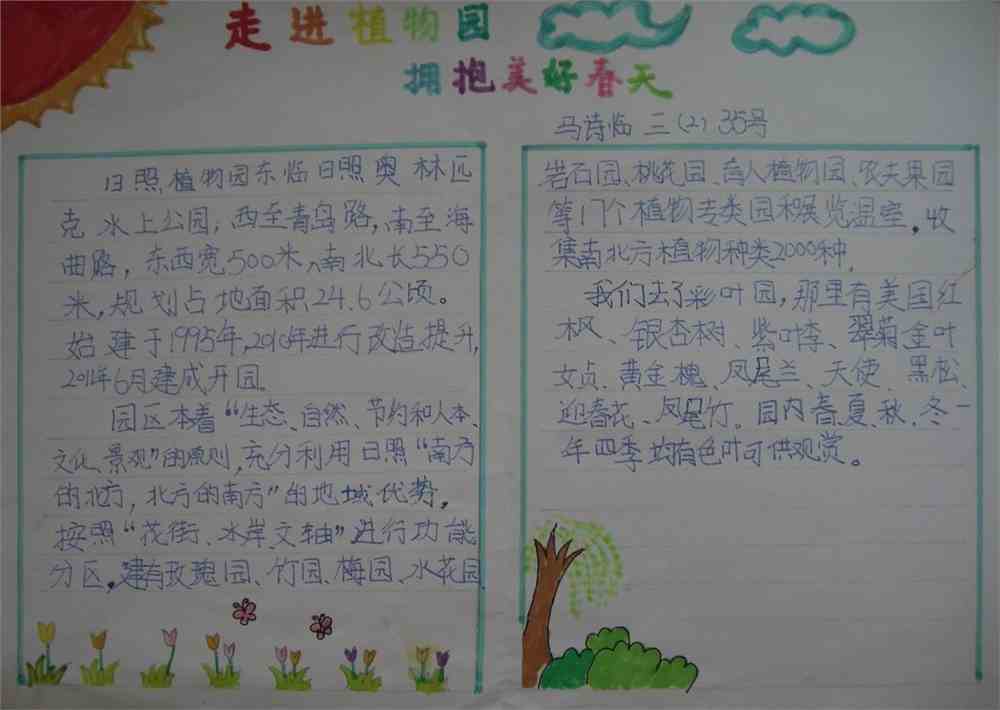 走进植物园
拥抱美好春天
马诗临 三(2) 35号
日照植物园东临日照奥林匹
克水上公园,西至青岛路,南至海
曲路,东西宽500米,南北长550
米,规划占地面积24.6公顷。
始建于1995年,2010年进行改造提升,
2011年6月建成开园。
园区本着“生态、自然、节约和人本、
文化、景观”的原则,充分利用日照“南方
的北方,北方的南方”的地域优势,
按照“花街、水岸、文轴”进行功能
分区,建有玫瑰园、竹园、梅园、水花园、
岩石园、桃花园、盲人植物园、农夫果园
等17个植物专类园和展览温室,收
集南北方植物种类2000种,
我们去了彩叶园,那里有美国红
枫、银杏树、紫叶李、翠菊、金叶
女贞、黄金槐、凤尾兰、天使、黑松、
迎春花、凤尾竹。园内春、夏、秋、冬一
年四季均有色叶可供观赏。